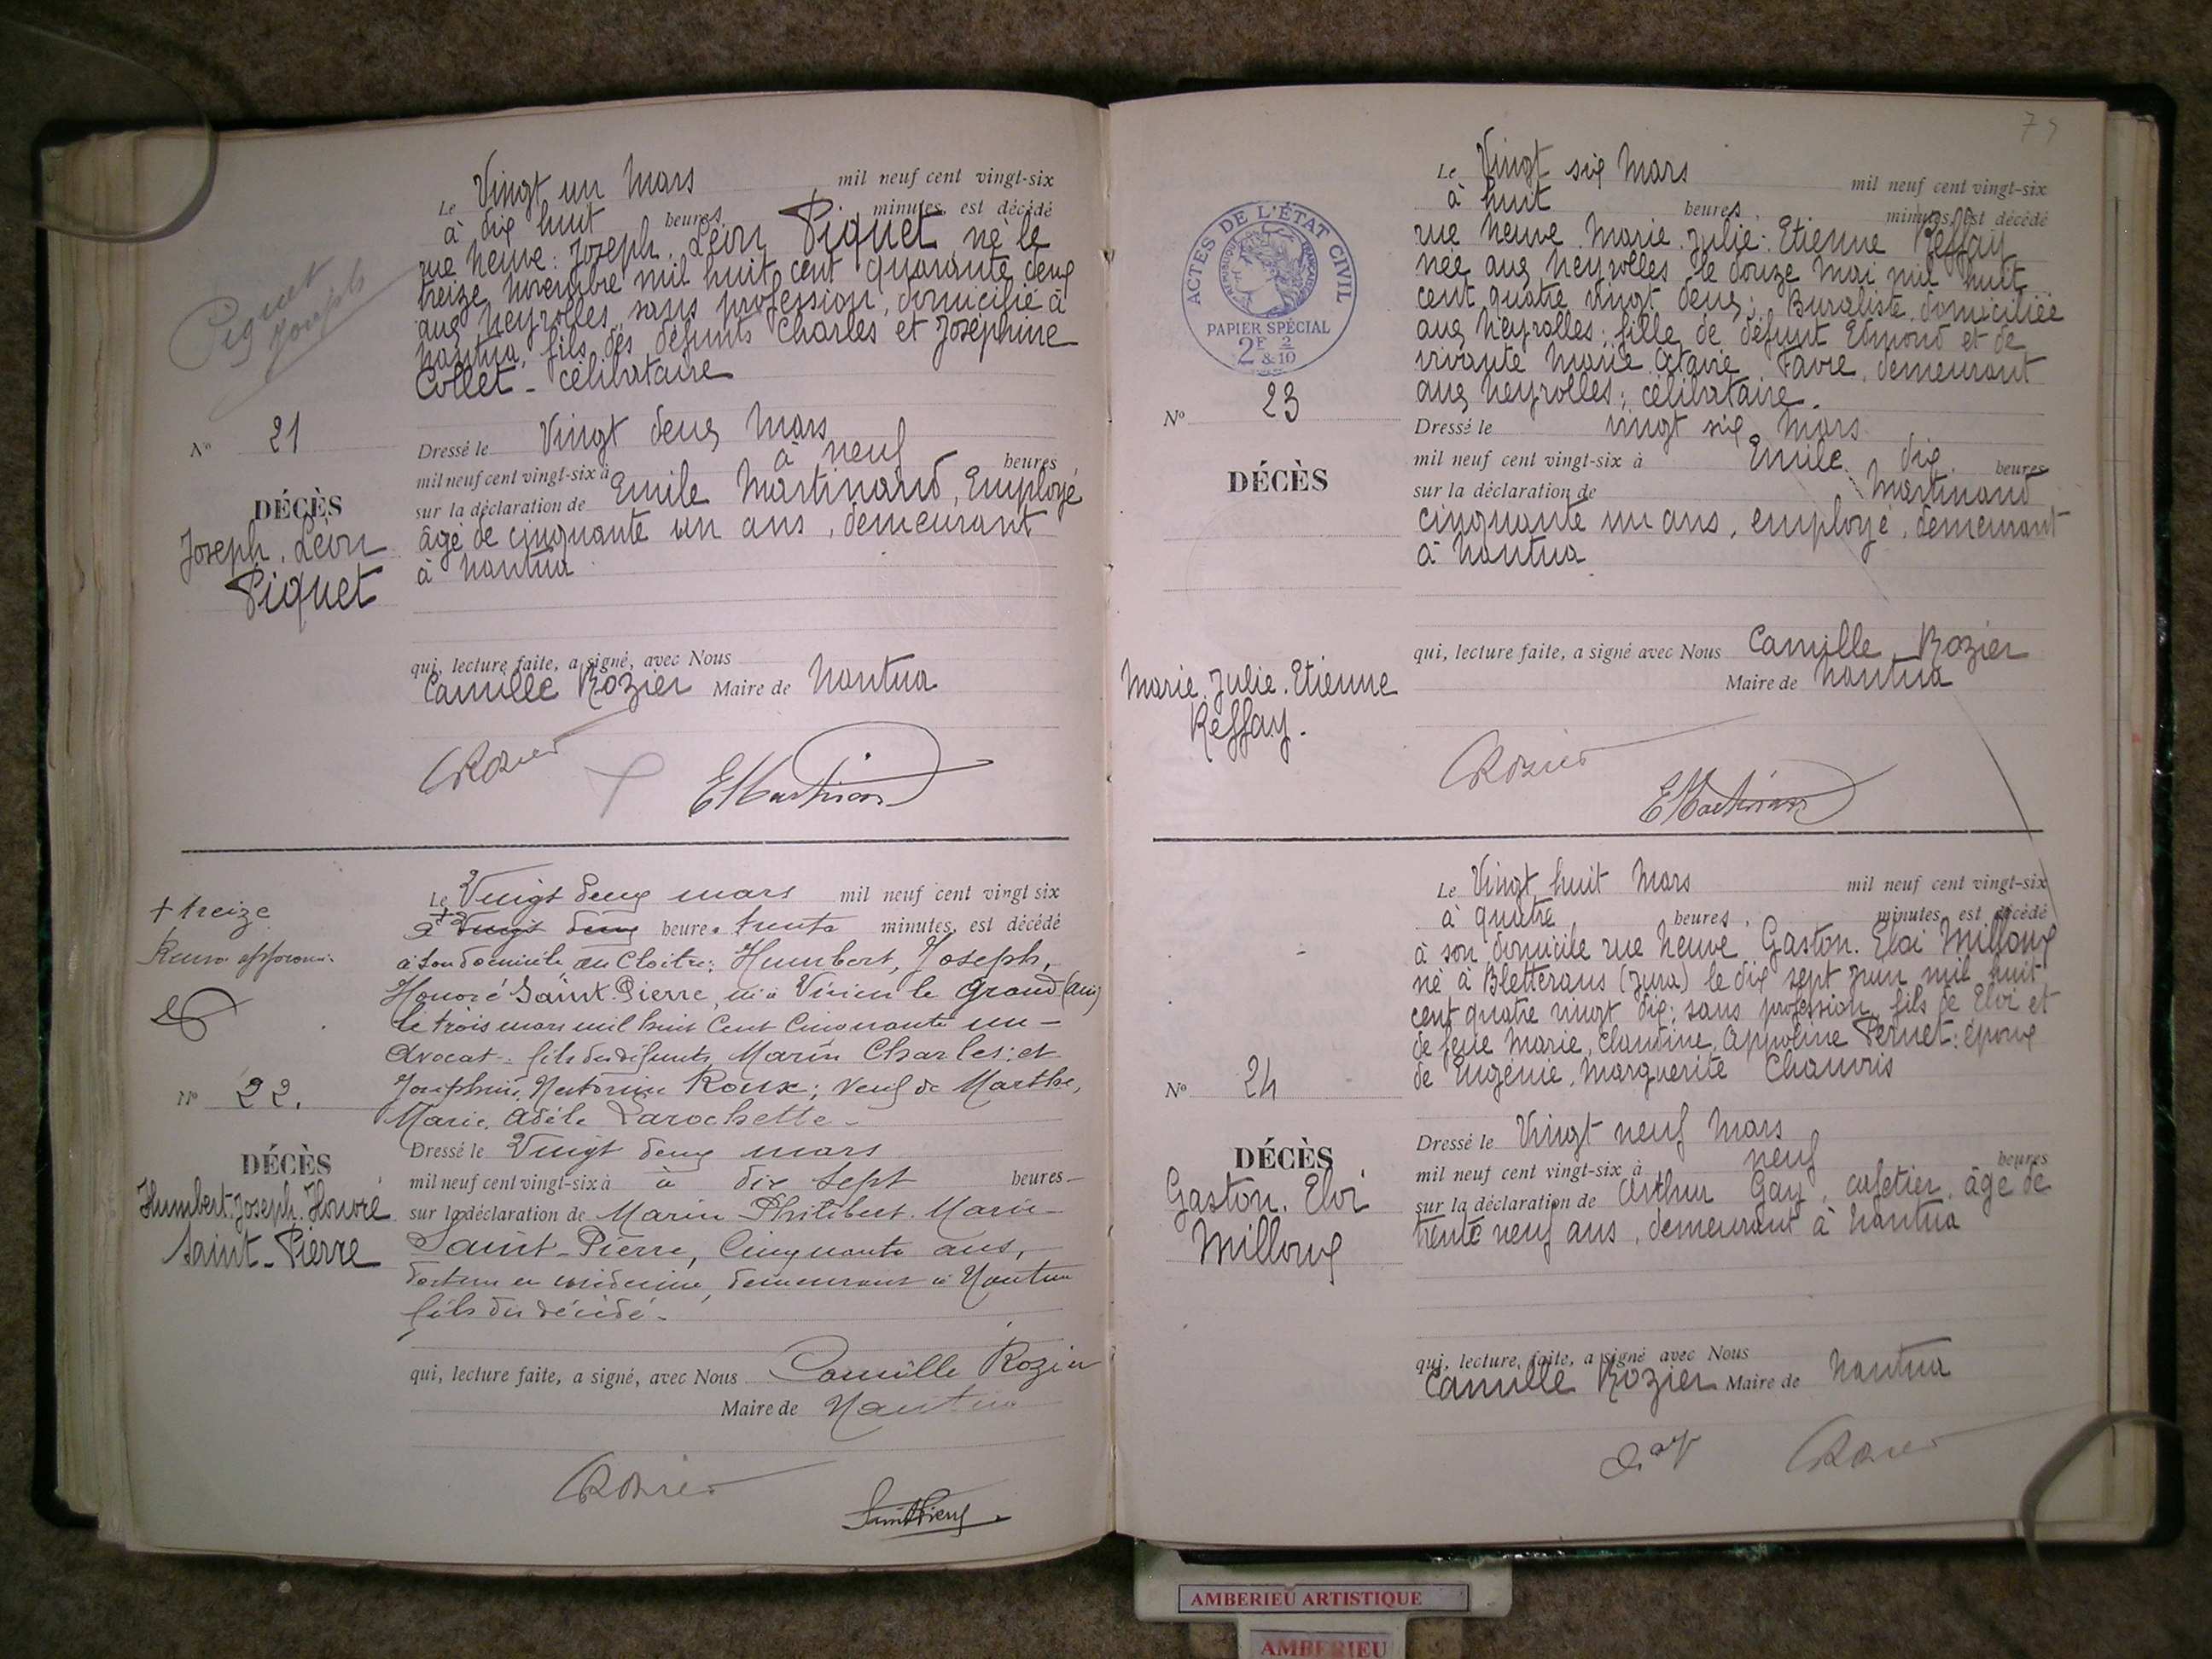 Piquet
Joseph
Le Vingt un Mars mil neuf cent vingt-six
à dix huit heures, minutes, est décédé
rue Neuve: Joseph, Léon Piquet, né le
treize novembre mil huit cent quarante deux
aux Neyrolles, sans profession, domicilié à
Nantua, fils des défunts Charles et Joséphine
Collet - célibataire
No 21
Dressé le Vingt deux Mars
mil neuf cent vingt-six à à neuf heures
sur la déclaration de Emile Martinand, Employé
DÉCÈS
âgé de cinquante un ans, demeurant
à Nantua
Joseph, Léon
Piquet
qui, lecture faite, a signé, avec Nous
Camille Rozier Maire de Nantua
CRozier
EMartinand
Le Vingt deux mars mil neuf cent vingt six
à Vingt deux heures trente minutes, est décédé
+ treize
approuvé
à son domicile au Cloître; Humbert, Joseph,
Honoré Saint-Pierre, né à le Grand (Ain)
le trois mars mil huit Cent Cinquante un -
Avocat - fils des défunts Marin Charles: et
Joséphine, Roux; veuf de Marthe,
Marie, Adèle Larochette -
No 22.
Dressé le Vingt deux mars
mil neuf cent vingt-six à à dix sept heures -
DÉCÈS
Humbert, Joseph, Honoré
Saint-Pierre
sur la déclaration de Marin Philibert Marie
Saint-Pierre, Cinquante ans,
docteur en médecine, demeurant à Nantua
fils du décédé -
qui, lecture faite, a signé, avec Nous Camille Rozier
Maire de Nantua
CRozier
SaintPierre
ACTES DE L'ÉTAT CIVIL
RÉPUBLIQUE FRANÇAISE
PAPIER SPÉCIAL
2F 2
& 10
Le Vingt six Mars mil neuf cent vingt-six
à huit heures, minutes, est décédé
rue Neuve, Marie, Julie, Etienne Reffay
née aux Neyrolles le douze Mai mil huit
cent quatre vingt deux; Buraliste domiciliée
aux Neyrolles; fille de défunt Edmond et de
vivante Marie Octavie Favre, demeurant
aux Neyrolles; célibataire.
No 23
Dressé le vingt six Mars
mil neuf cent vingt-six à dix heures
DÉCÈS
sur la déclaration de Emile Martinand
cinquante un ans, employé, demeurant
à Nantua
Marie, Julie, Etienne
Reffay.
qui, lecture faite, a signé avec Nous Camille Rozier
Maire de Nantua
CRozier
EMartinand
Le Vingt huit Mars mil neuf cent vingt-six
à quatre heures, minutes est décédé
à son domicile rue Neuve Gaston, Eloi Milloux
né à Bletterans (Jura) le dix sept Juin mil huit
cent quatre vingt dix; sans profession, fils de Eloi et
de feue Marie, Claudine, Appoline Pernet: époux
de Eugénie, Marguerite Chauvris
No 24
Dressé le Vingt neuf Mars
mil neuf cent vingt-six à neuf heures
DÉCÈS
Gaston, Eloi
Milloux
sur la déclaration de Arthur Gay, cafetier, âgé de
trente neuf ans, demeurant à Nantua
qui, lecture faite, a signé avec Nous
Camille Rozier Maire de Nantua
Gay CRozier
AMBERIEU ARTISTIQUE
AMBERIEU